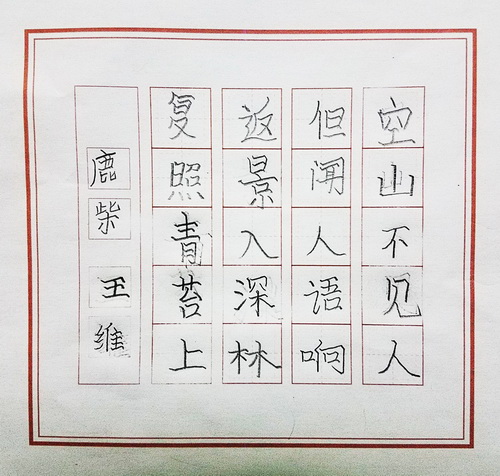 空山不见人
但闻人语响
返景入深林
复照青苔上
鹿柴
王维